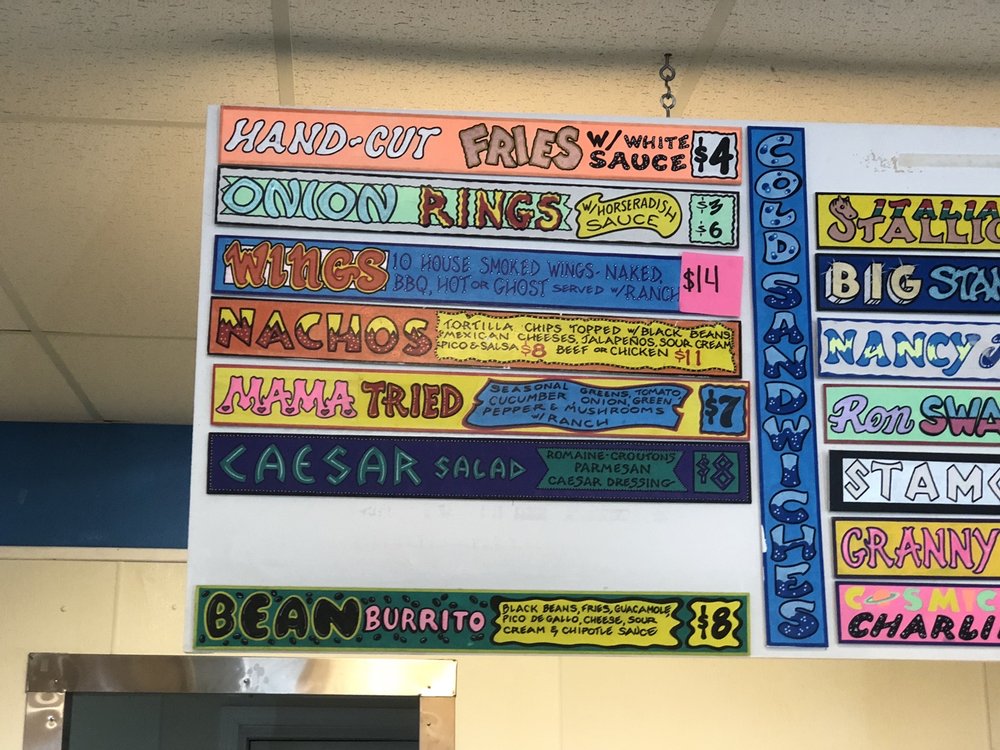 HAND-CUT FRIES W/ WHITE SAUCE $4
ONION RINGS W/HORSERADISH SAUCE $3 $6
WINGS 10 HOUSE SMOKED WINGS - NAKED,
BBQ, HOT OR GHOST SERVED W/RANCH $14
NACHOS TORTILLA CHIPS TOPPED W/ BLACK BEANS
MEXICAN CHEESES, JALAPEÑOS, SOUR CREAM
PICO & SALSA $8 BEEF OR CHICKEN $11
MAMA TRIED SEASONAL GREENS, TOMATO,
CUCUMBER ONION, GREEN
PEPPER & MUSHROOMS
W/RANCH $7
CAESAR SALAD ROMAINE - CROUTONS
PARMESAN
CAESAR DRESSING $8
BEAN BURRITO BLACK BEANS, FRIES, GUACAMOLE,
PICO DE GALLO, CHEESE, SOUR
CREAM & CHIPOTLE SAUCE $8
COLD SANDWICHES
ITALIA
STALLIO
BIG STA
NANCY
Ron SWA
STAMO
GRANNY
COSMIC
CHARLI